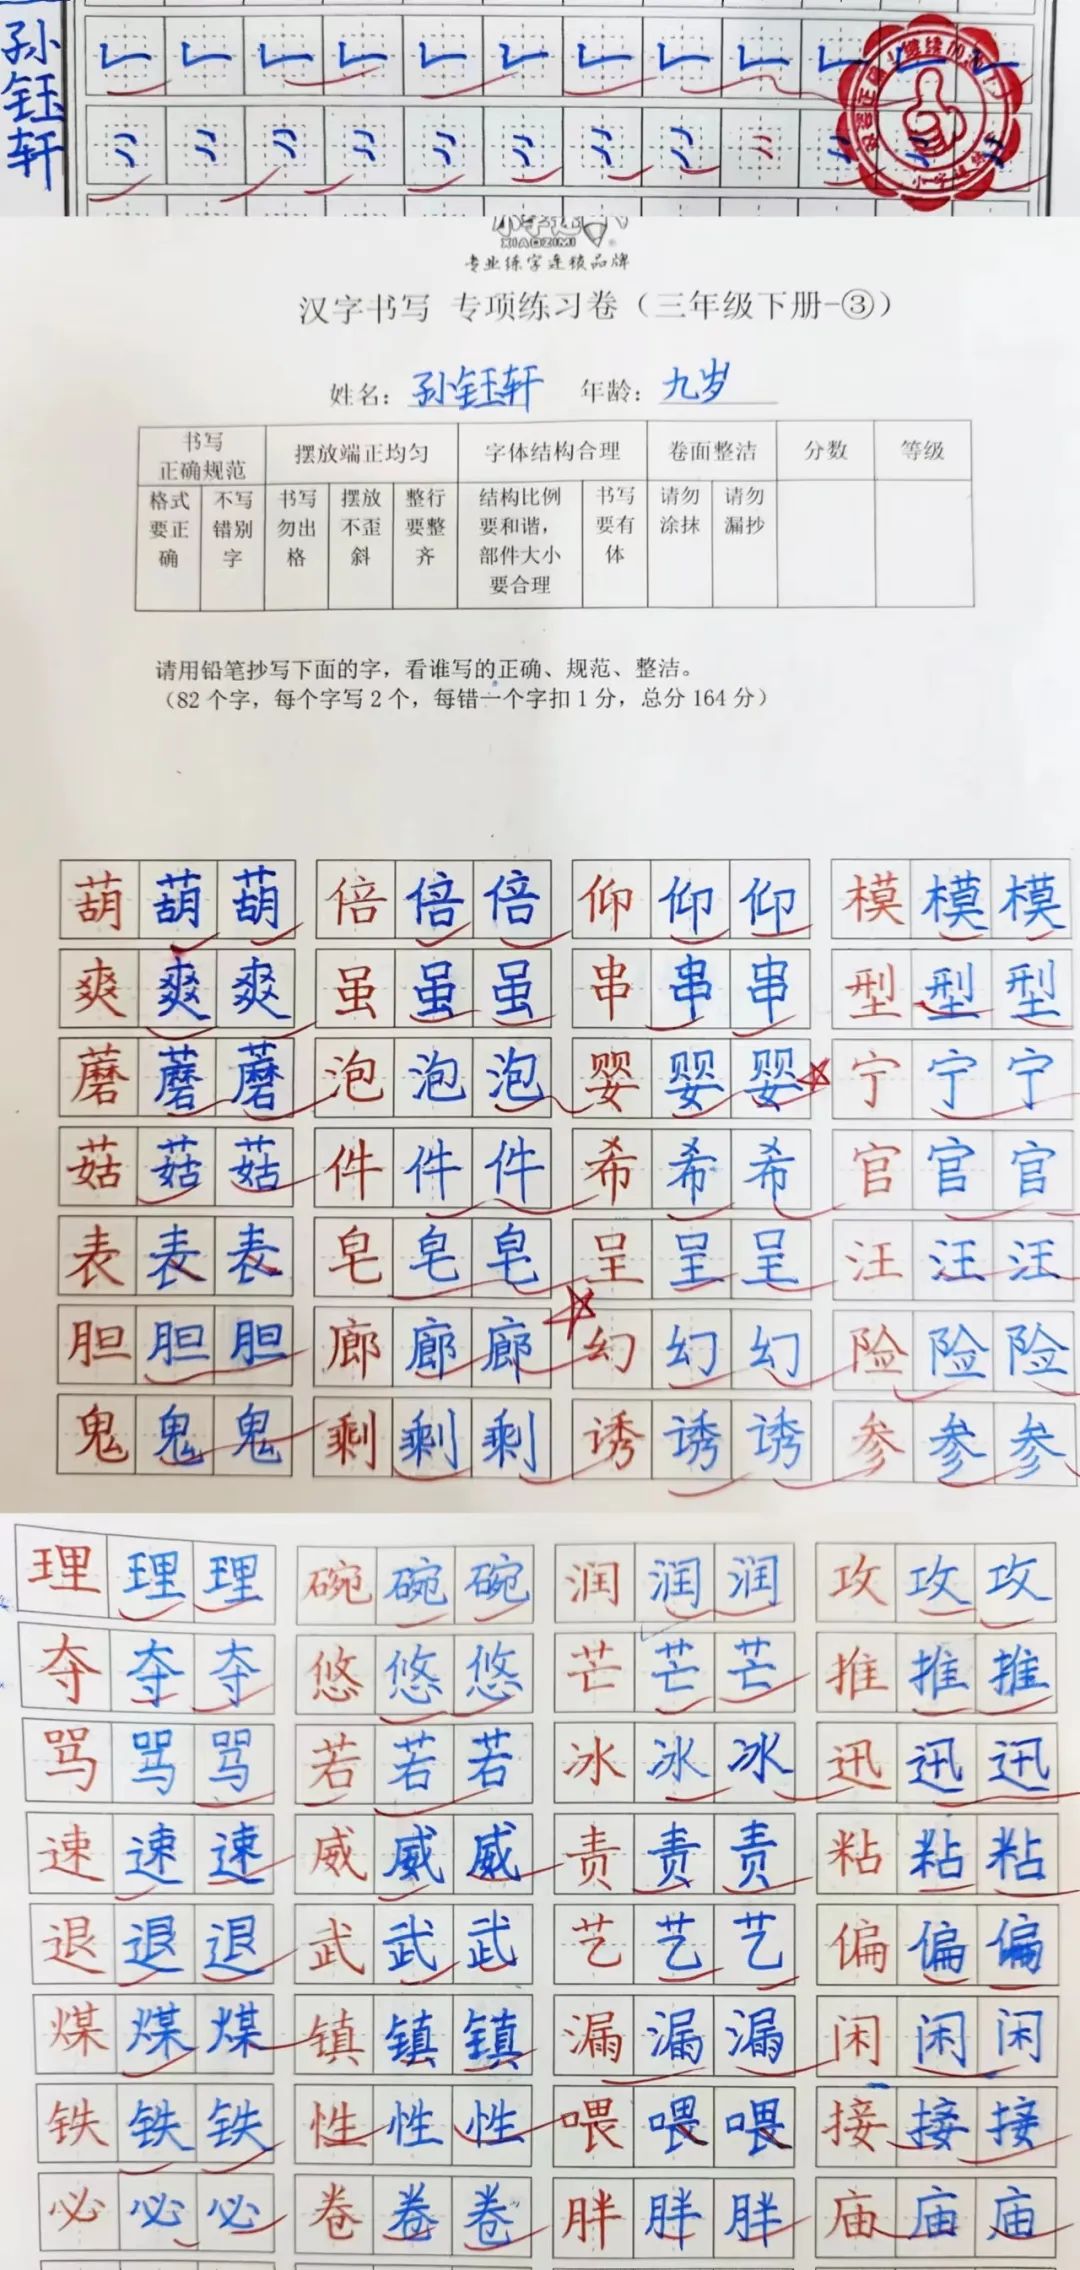 孙钰轩
XIAOZIMI
专业练字连锁品牌
汉字书写 专项练习卷（三年级下册-③）
姓名：孙钰轩 年龄：九岁
书写正确规范 摆放端正均匀 字体结构合理 卷面整洁 分数 等级
格式要正确 不写错别字 书写勿出格 摆放不歪斜 整行要整齐 结构比例要和谐，部件大小要合理 书写要有体 请勿涂抹 请勿漏抄
请用铅笔抄写下面的字，看谁写的正确、规范、整洁。
（82个字，每个字写2个，每错一个字扣1分，总分164分）
葫葫葫 倍倍倍 仰仰仰 模模模
爽爽爽 虽虽虽 串串串 型型型
蘑蘑蘑 泡泡泡 婴婴婴 宁宁宁
菇菇菇 件件件 希希希 官官官
表表表 皂皂皂 呈呈呈 汪汪汪
胆胆胆 廊廊廊 幻幻幻 险险险
鬼鬼鬼 剩剩剩 诱诱诱 参参参
理理理 碗碗碗 润润润 攻攻攻
夺夺夺 悠悠悠 芒芒芒 推推推
骂骂骂 若若若 冰冰冰 迅迅迅
速速速 威威威 责责责 粘粘粘
退退退 武武武 艺艺艺 偏偏偏
煤煤煤 镇镇镇 漏漏漏 闲闲闲
铁铁铁 性性性 喂喂喂 接接接
必必必 卷卷卷 胖胖胖 庙庙庙